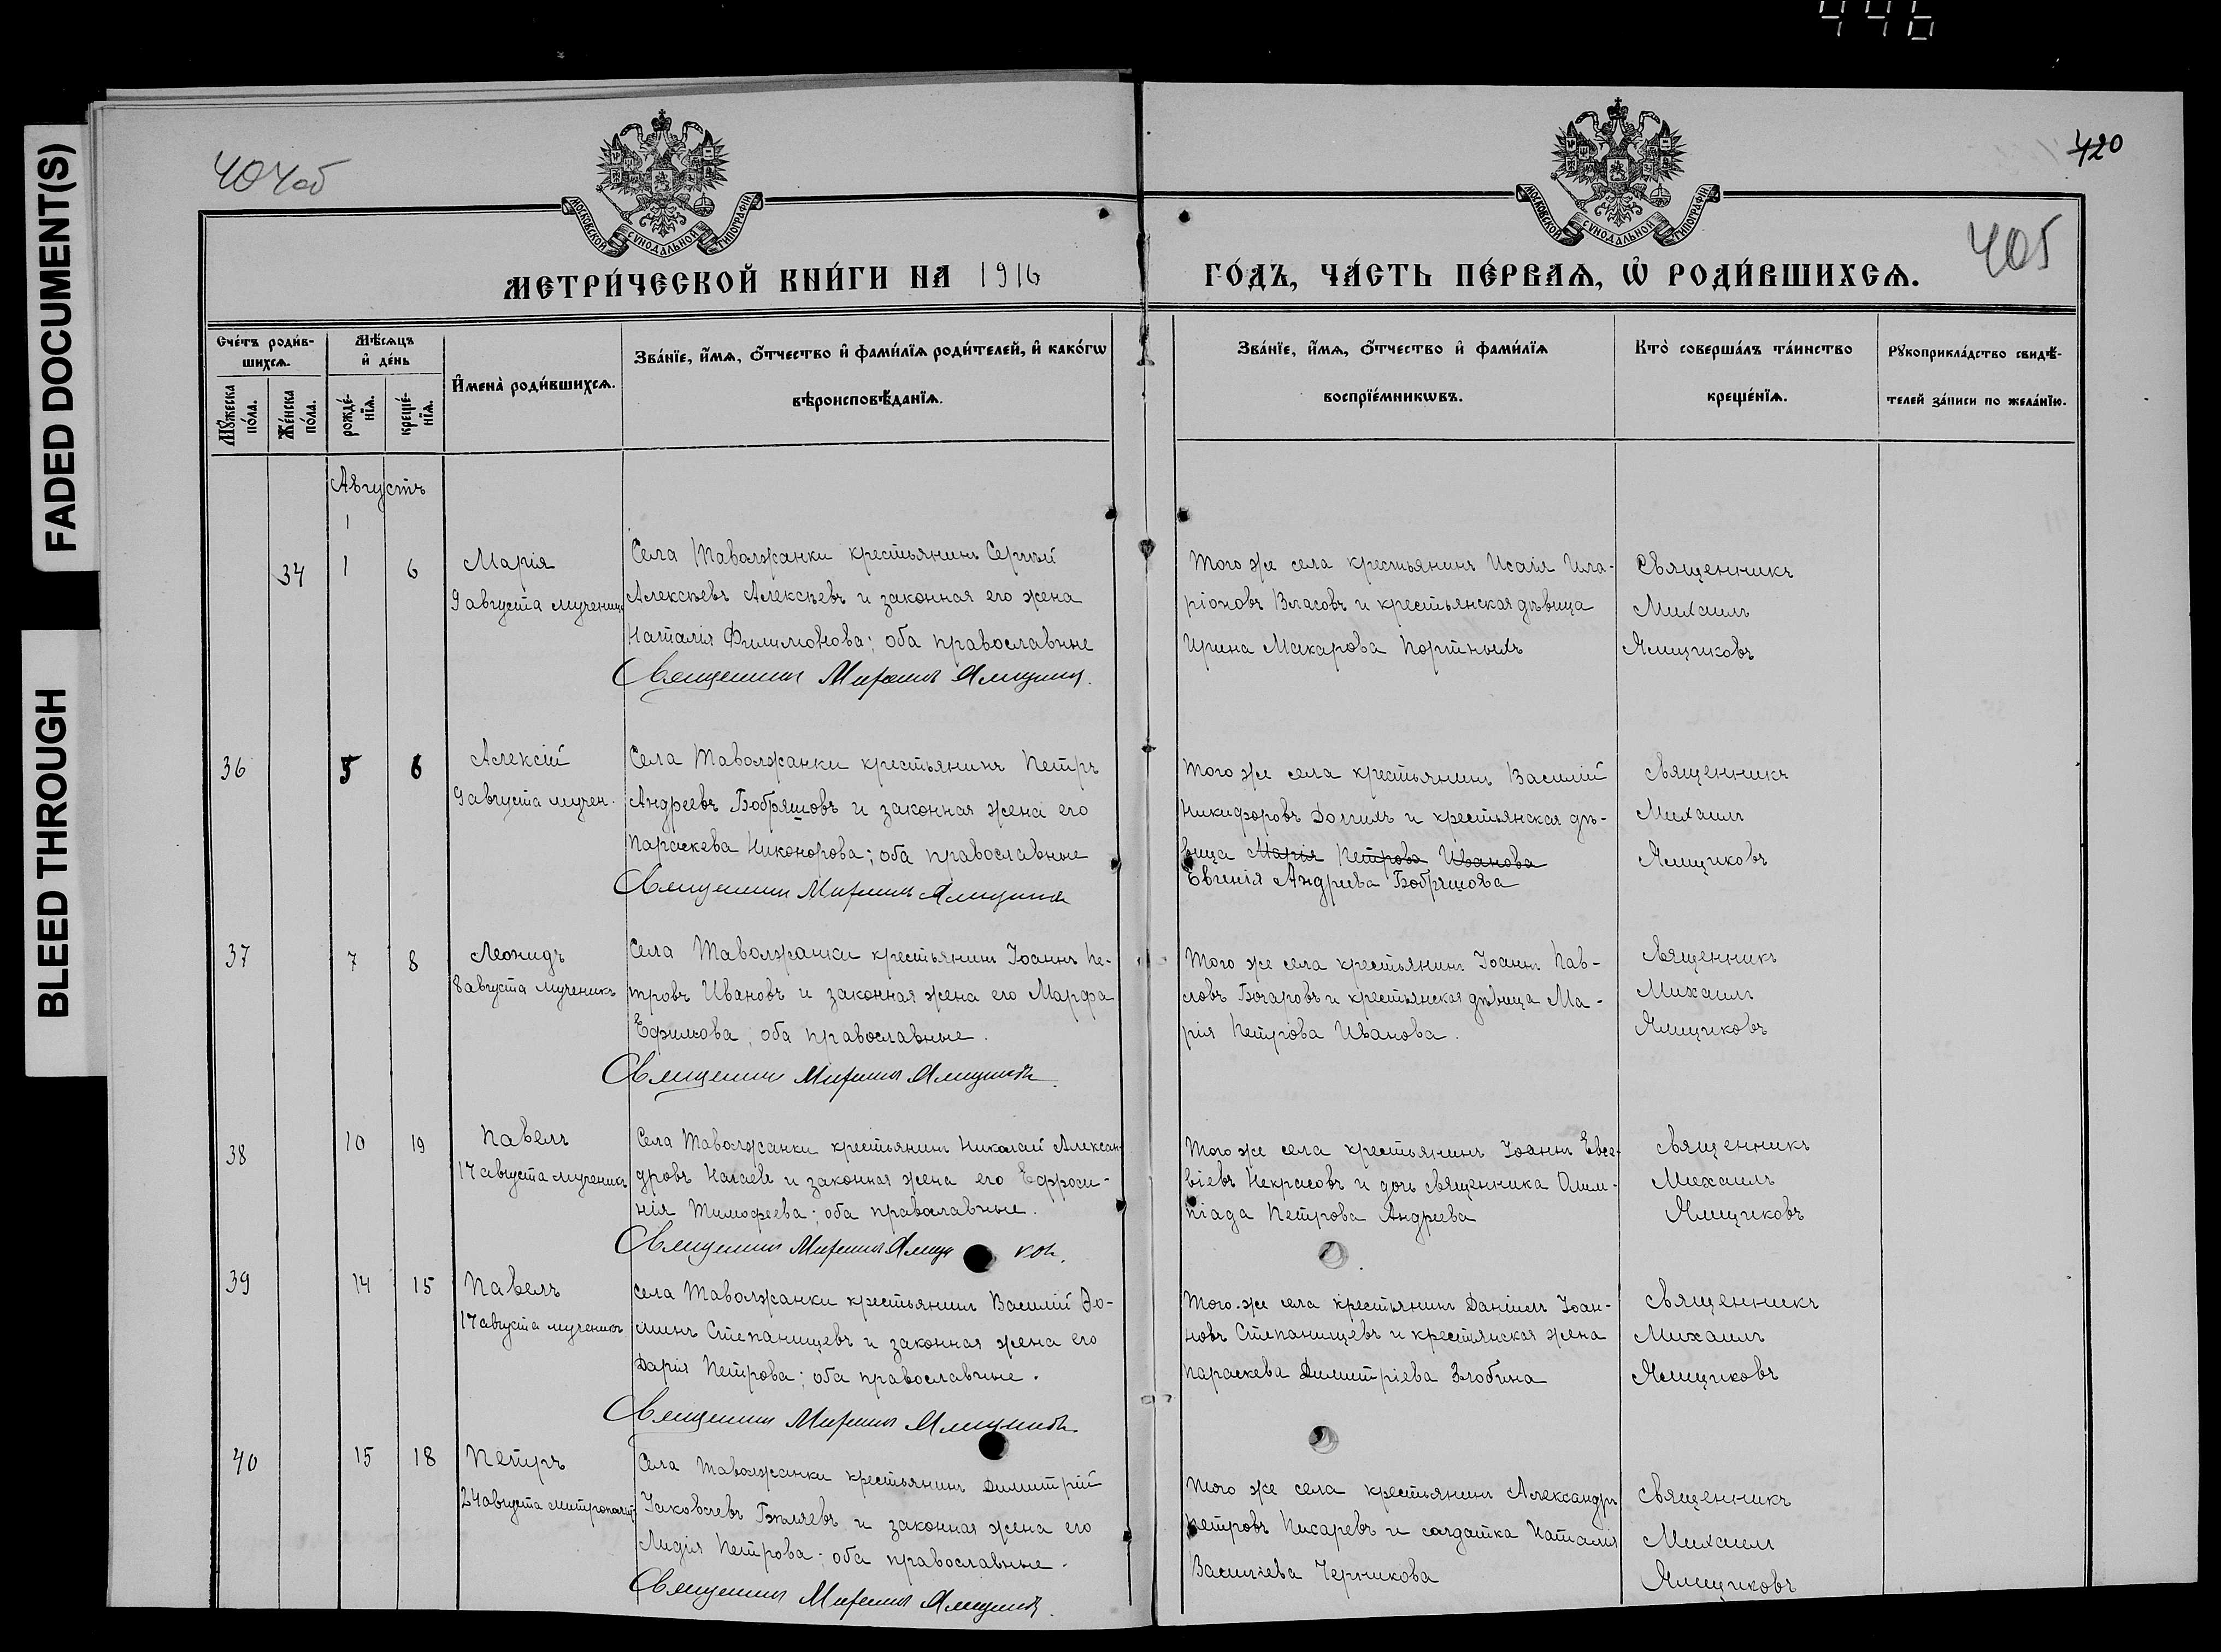 446
FADED DOCUMENT(S)
BLEED THROUGH
404об
420
405
МОСКОВСКОЙ СѴНОДАЛЬНОЙ ТИПОГРАФІИ
МОСКОВСКОЙ СѴНОДАЛЬНОЙ ТИПОГРАФІИ
МЕТРИ́ЧЕСКОЙ КНИ́ГИ НА 1916 ГО́ДЪ, ЧА́СТЬ ПЕ́РВАѦ, Ѡ҆ РОДИ́ВШИХСѦ.
Сче́тъ роди́в-
шихсѧ.
Мꙋ́жеска
по́ла.
Же́нска
по́ла.
Мѣ́сѧцъ
и҆ де́нь
рожде́-
нїѧ.
креще́-
нїѧ.
И҆мена̀ роди́вшихсѧ.
Зва́нїе, и҆́мѧ, ѻ҆́тчество и҆ фамѝлїѧ роди́телей, и҆ како́гѡ
вѣроисповѣ́данїѧ.
Зва́нїе, и҆́мѧ, ѻ҆́тчество и҆ фами́лїѧ
воспрїе́мникѡвъ.
Кто̀ соверша́лъ та́инство
креще́нїѧ.
Рꙋкоприкла́дство свидѣ́-
телей за́писи по жела́нїю.
Августъ
1
34 1 6
Марія
9 августа мученицы
Села Таволжанки крестьянинъ Сергѣй
Алексѣевъ Алексѣевъ и законная его жена
Наталія Филимонова; оба православные
Священникъ Михаилъ Ямщиковъ.
Того же села крестьянинъ Исаія Ила-
ріоновъ Власовъ и крестьянская дѣвица
Ирина Макарова Портныхъ
Священникъ
Михаилъ
Ямщиковъ
36 5 6
Алексій
9 августа мучен.
Села Таволжанки крестьянинъ Петръ
Андреевъ Бобряшовъ и законная жена его
Параскева Никонорова; оба православные
Священникъ Михаилъ Ямщиковъ
Того же села крестьянинъ Василій
Никифоровъ Долгихъ и крестьянская дѣ-
вица Марія Петрова Иванова
Евгенія Андреева Бобряшова
священникъ
Михаилъ
Ямщиковъ
37 7 8
Леонидъ
8 августа мученикъ
Села Таволжанки крестьянинъ Іоаннъ Пе-
тровъ Ивановъ и законная жена его Марфа
Ефимова; оба православные.
Священникъ Михаилъ Ямщиковъ.
Того же села крестьянинъ Іоаннъ Пав-
ловъ Бочаровъ и крестьянская дѣвица Ма-
рія Петрова Иванова.
священникъ
Михаилъ
Ямщиковъ
38 10 19
Павелъ
17 августа мученикъ
Села Таволжанки крестьянинъ Николай Алексан-
дровъ Нагаевъ и законная жена его Ефроси-
нія Тимофеева; оба православные.
Священникъ Михаилъ Ямщи ковъ.
Того же села крестьянинъ Іоаннъ Евсе-
віевъ Некрасовъ и дочь священника Олим-
піада Петрова Андреева
священникъ
Михаилъ
Ямщиковъ
39 14 15
Павелъ
17 августа мученикъ
Села Таволжанки крестьянинъ Василій Ѳо-
минъ Степанищевъ и законная жена его
Дарія Петрова; оба православные.
Священникъ Михаилъ Ямщиковъ.
Того-же села крестьянинъ Даніилъ Іоан-
новъ Степанищевъ и крестьянская жена
Параскева Димитріева Злобина
священникъ
Михаилъ
Ямщиковъ
40 15 18
Петръ
24 августа митрополит
Села Таволжанки крестьянинъ Димитрій
Іаковлевъ Бѣляевъ и законная жена его
Лидія Петрова; оба православные.
Священникъ Михаилъ Ямщиковъ.
Того же села крестьянинъ Александръ
Петровъ Писаревъ и солдатка Наталія
Василіева Черникова
священникъ
Михаилъ
Ямщиковъ